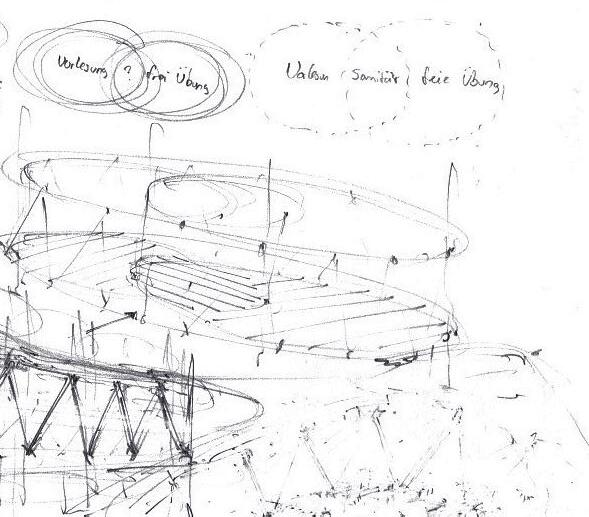 Vorlesung ? frei Übung
Sanitär freie Übung